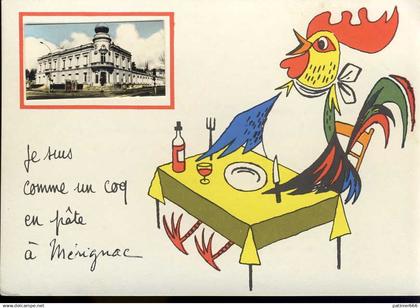 Je suis
comme un coq
en pâte
à Mérignac